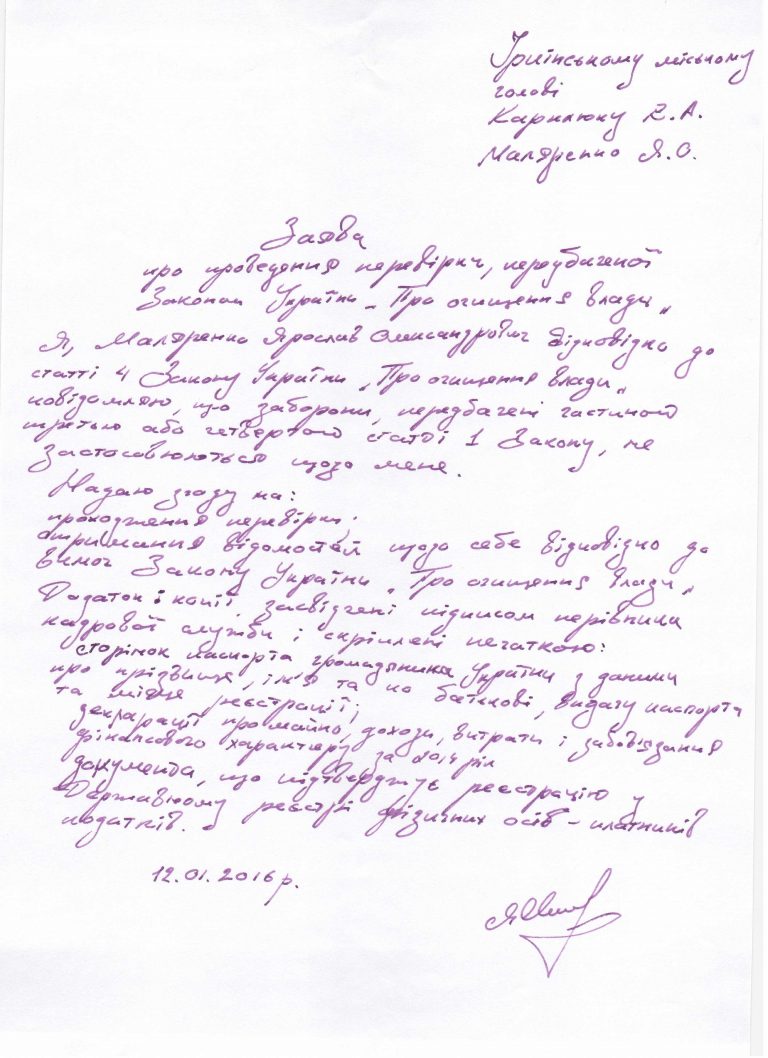 Ірпінському міському
голові
Карплюку В.А.
Маляренко Я.О.
Заява
про проведення перевірки, передбаченої
Законом України „Про очищення влади„
Я, Маляренко Ярослав Олександрович відповідно до
статті 4 Закону України „Про очищення влади„
повідомляю, що заборони, передбачені частиною
третью або четвертою статті 1 Закону, не
застосовюються щодо мене.
Надаю згоду на:
проходження перевірки;
отримання відомостей щодо себе відповідно до
вимог Закону України „Про очищення влади„
Додаток: копії засвідчені підписом керівника
кадрової служби і скріплені печаткою:
сторінок паспорта громадянина України з даними
про прізвище, ім'я та по батькові, видачу паспорта
та місце реєстрації;
декларації про майно, доходи, витрати і забов'язання
фінансового характеру за 2014 рік
документа, що підтверджує реєстрацію у
Державному реєстрі фізичних осіб – платників
податків.
12.01.2016 р.